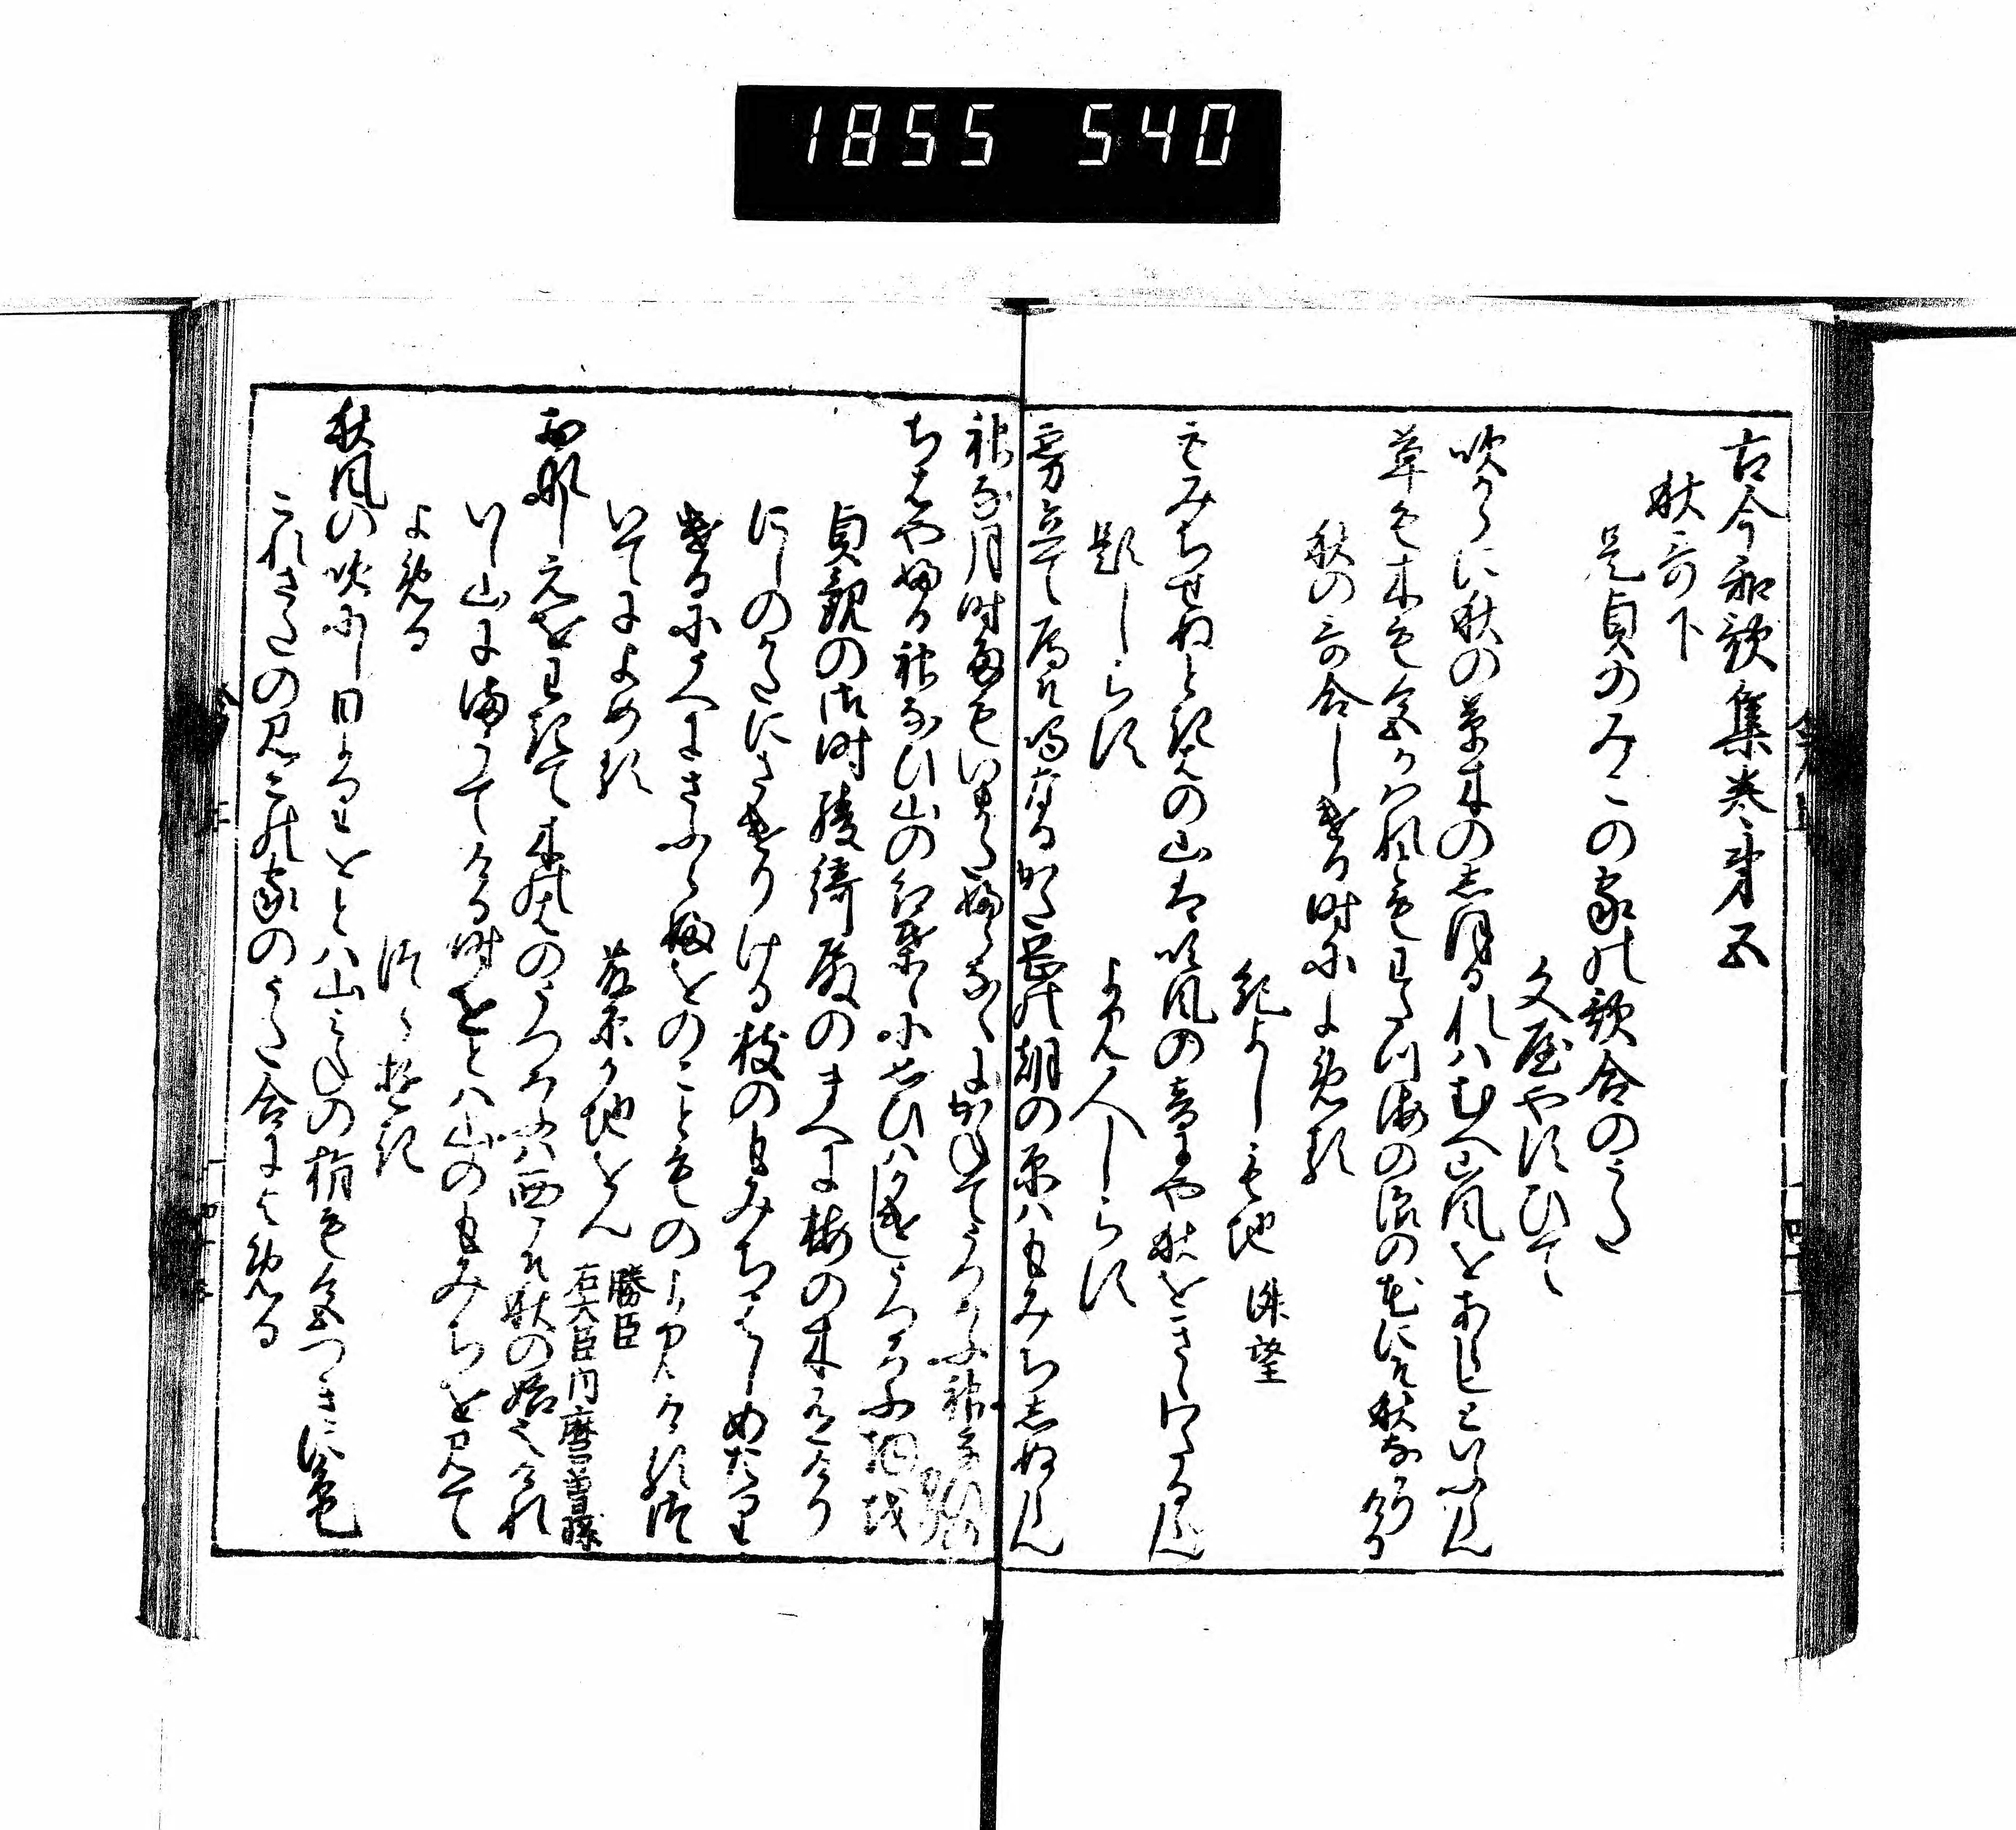 1855 540
古今和歌集巻第五
秋哥下
是貞のみこの家の歌合のうた
文屋やすひて
吹からに秋の草木のしほるれはむへ山風をあらしといふらん
草も木も色かはれ共わたつ海の浪の花にそ秋なかりける
秋の哥合しける時によめる
紀よしもち 淑望
もみちせぬときはの山は吹風の音にや秋をきゝわたるらん
題しらす
よみ人しらす
霧立て鴈そ鳴なるかた岡の朝の原はもみちしぬらん
神な月時雨もいまたふらなくにかねてうつろふ神なひの
ちはやふる神なひ山の紅葉ゝに思ひはかけしうつろふ物を
貞観の御時綾綺殿のまへに梅の木有けり
にしのかたにさせりける枝のもみちはしめたり
けるにうへにさふらふをのこともの よみけるつ
いてによめる
藤原かちをん 勝臣
石大臣内麿曽孫
おなしえをわきて木のはのうつろふは西こそ秋の始なりけれ
いし山にまうてける時をとは山のもみちを見て
よめる
つらゆき
秋風の吹にし日よりをとは山みねの梢も色つきにけり
これさたの見この家のうた合によめる